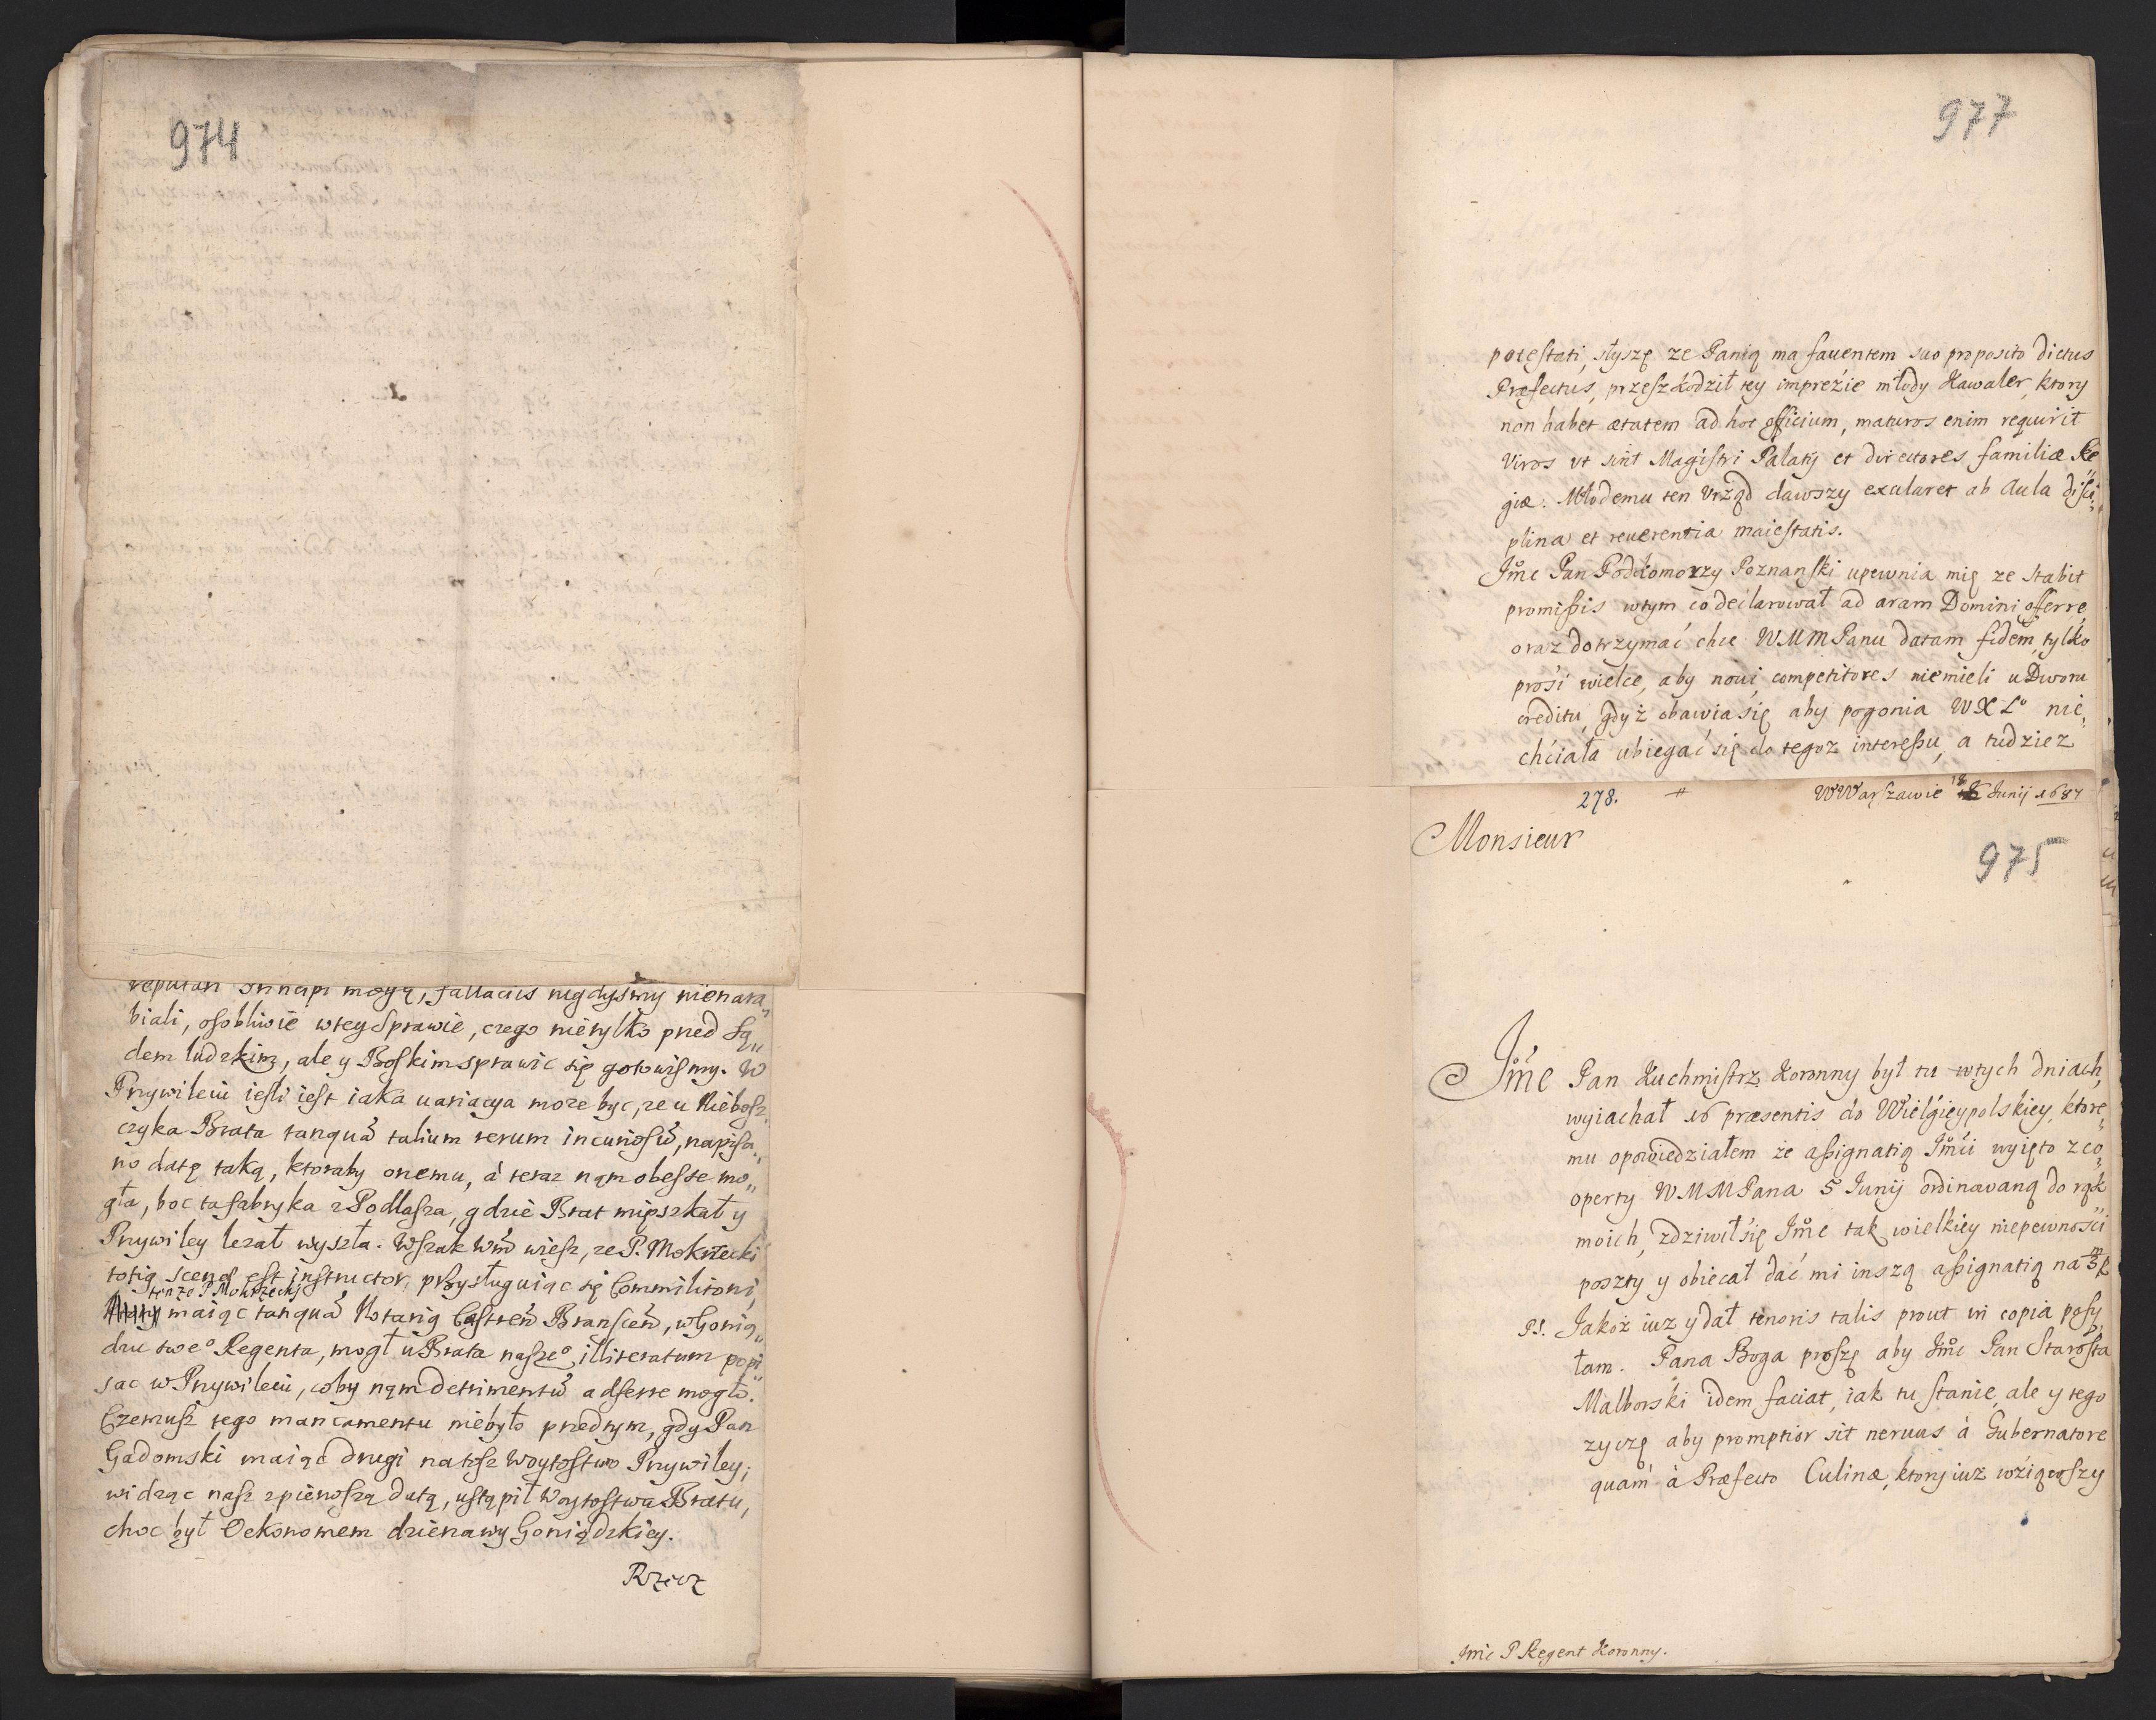 974
reputari Principi mogą, fallaciis nigdysmy nienara„
biali, osobliwie wtey Sprawie, czego nietylko przed Są„
dem ludzkim, ale y Boskim sprawic się gotowismy. W
Przywileiu iesli iest iaka uariacya moze byc, ze u Niebosz„
czyka Brata tanquã talium rerum incuriosũ, napisa„
no datę taką, ktoraby onemu, à teraz nąm obesse mo„
gła, boc ta fabryka z Podlasza, gdzie Brat mięszkał y
Przywiley lezał wyszła. Wszak Wm wiesz, ze P. Mokrzecki
totiq scenæ est instructor, przysługuiąc się Commilitoni,
tenze P Mokrzecky
maiąc tanquã Notariq Castreñ Bransceñ, w Gonią„
dzu swe° Regenta, mogł u Brata nasze° illiteratum popi„
sac w Przywileiu, coby nąm detrimentũ adferre mogło.
Czemusz tego mancamentu niebyło przedtym, gdy Pan
Gadomski maiąc drugi na tosz Woytostwo Przywiley,
widząc nasz zpienoszą datą, ustąpił Woytostwa Bratu,
choc był Oekonomem dzierzawy Goniądzkiey.
Rzecz
977
potestati, słyszę ze Panią ma fauentem suo proposito dictus
Præfectus, przeszkodził tey imprezie młody Kawaler, ktory
non habet ætatem ad hoc officium, maturos enim requirit
Viros vt sint Magistri Palatij et directores familiæ Re
giæ. Młodemu ten Vrząd dawszy exularet ab Aula disci„
plina et reuerentia maiestatis.
Jmć Pan Podkomorzy Poznanski upewnia mię ze stabit
promissis wtym co declarował ad aram Domini offerre,
oraz dotrzymać chce WMMPanu datam fidem, tylko
prosi wielce, aby noui competitores niemieli u Dworu
creditu, gdyż obawia się aby pogonia WXL° nie„
chciała ubiegać się do tegoz interessu, a tudziez
278.
W Warszawie 18 Junij 1687
Monsieur
975
Jmć Pan Kuchmistrz Koronny był tu wtych dniach,
wyiachał 16 præsentis do Wielgieypolskiey, ktore„
mu opowiedziałem że assignatią Jmći wyięto z co„
operty WMMPana 5 Junij ordinavaną do rąk
moich, zdziwił się Jmć tak wielkiey niepewności
poszty y obiecał dać mi inszą assignatią na
P.S. Jakoż iuz y dał tenoris talis prout in copia posy„
łam. Pana Boga proszę aby Jmć Pan Starosta
Malborski idem faciat, iak tu stanie, ale y tego
zyczę aby promptior sit neruus à Gubernatore
quam à Præfecto Culinæ, ktory iuz wziąwszy
Jmć P Regent Koronny.